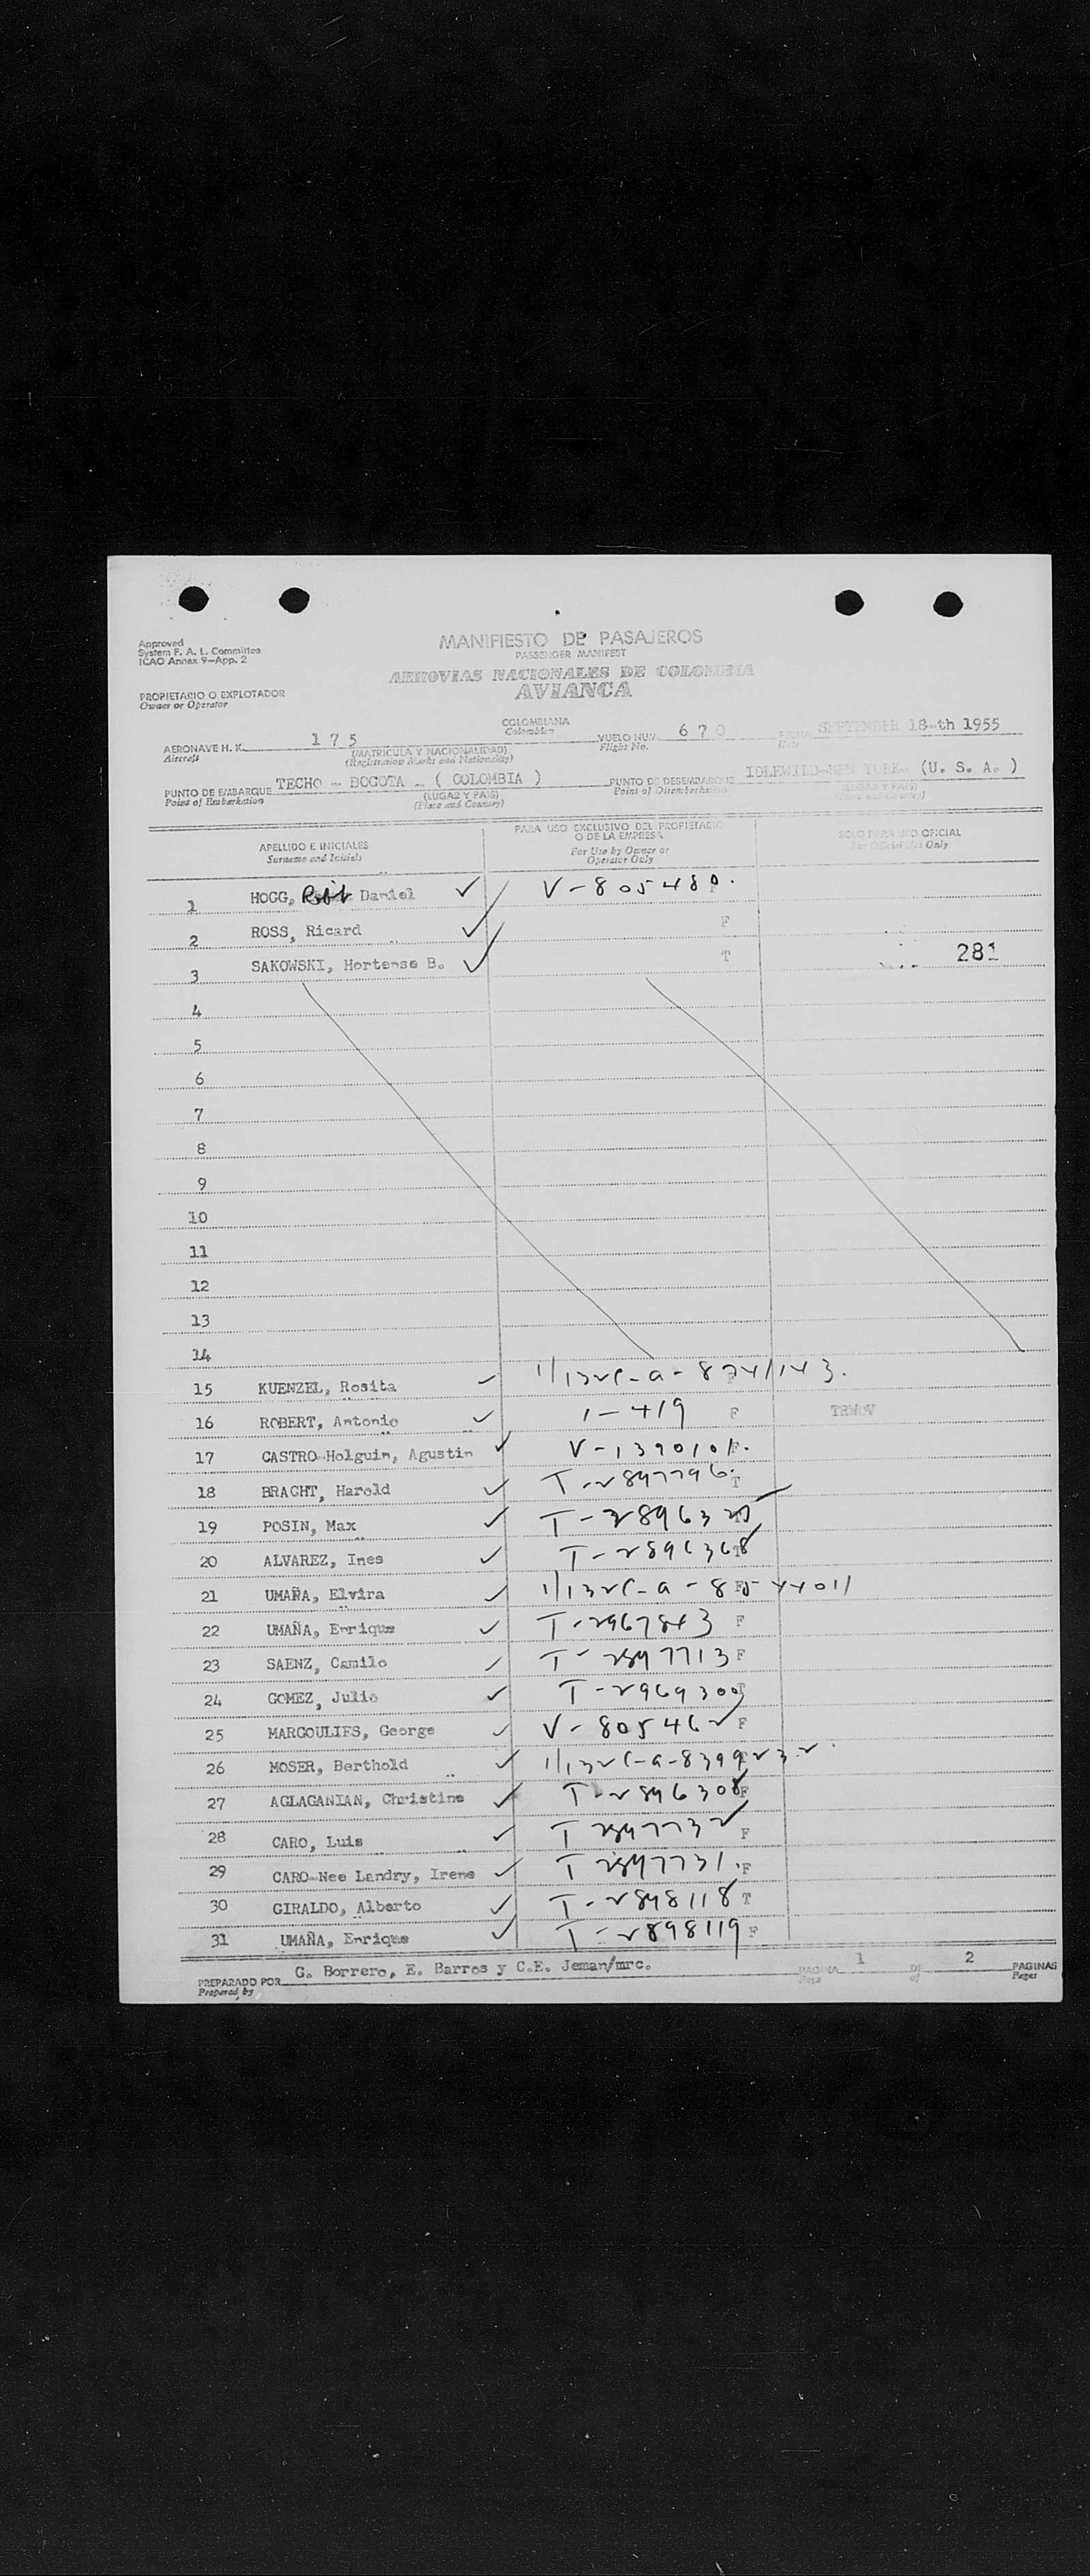 Approved
System F. A. L. Committee
ICAO Annex 9—App. 2
MANIFIESTO DE PASAJEROS
PASSENGER MANIFEST
AEROVIAS NACIONALES DE COLOMBIA
AVIANCA
PROPIETARIO O EXPLOTADOR
Owner or Operator
COLOMBIANA
Colombian
AERONAVE H. K. 175 VUELO NUM. 670 FECHA SEPTEMBER 18-th 1955
Aircraft (MATRICULA Y NACIONALIDAD) Flight No. Date
(Registration Marks and Nationality)
PUNTO DE EMBARQUE TECHO - BOGOTA - ( COLOMBIA ) PUNTO DE DESEMBARQUE IDLEWILD-NEW YORK- (U. S. A. )
Point of Embarkation (LUGAR Y PAIS) Point of Disembarkation (LUGAR Y PAIS)
(Place and Country) (Place and Country)
APELLIDO E INICIALES PARA USO EXCLUSIVO DEL PROPIETARIO O DE LA EMPRESA SOLO PARA USO OFICIAL
Surname and Initials For Use by Owner or Operator Only For Official Use Only
1 HOGG, Daniel V-805480. F
2 ROSS, Ricard F
3 SAKOWSKI, Hortense B. T 281
4
5
6
7
8
9
10
11
12
13
14
15 KUENZEL, Rosita
16 ROBERT, Antonio 1-419 F TRWOV
17 CASTRO-Holguin, Agustin V-1390101. F
18 BRACHT, Harold T-2897796. T
19 POSIN, Max T-2896325
20 ALVAREZ, Ines T-2896368 T
21 UMAÑA, Elvira F
22 UMAÑA, Enrique T-2967843 F
23 SAENZ, Camilo T-2897713 F
24 GOMEZ, Julio T-2969300 T
25 MARGOULIES, George V-805462 F
26 MOSER, Berthold
27 AGLAGANIAN, Christine T-2896308 F
28 CARO, Luis T 2897732 F
29 CARO-Nee Landry, Irene T 2897731. F
30 GIRALDO, Alberto T-2898118 T
31 UMAÑA, Enrique T-2898119 F
PREPARADO POR G. Borrero, E. Barros y C.E. Jeman/mrc. PAGINA 1 DE 2 PAGINAS
Prepared by Page of Pages